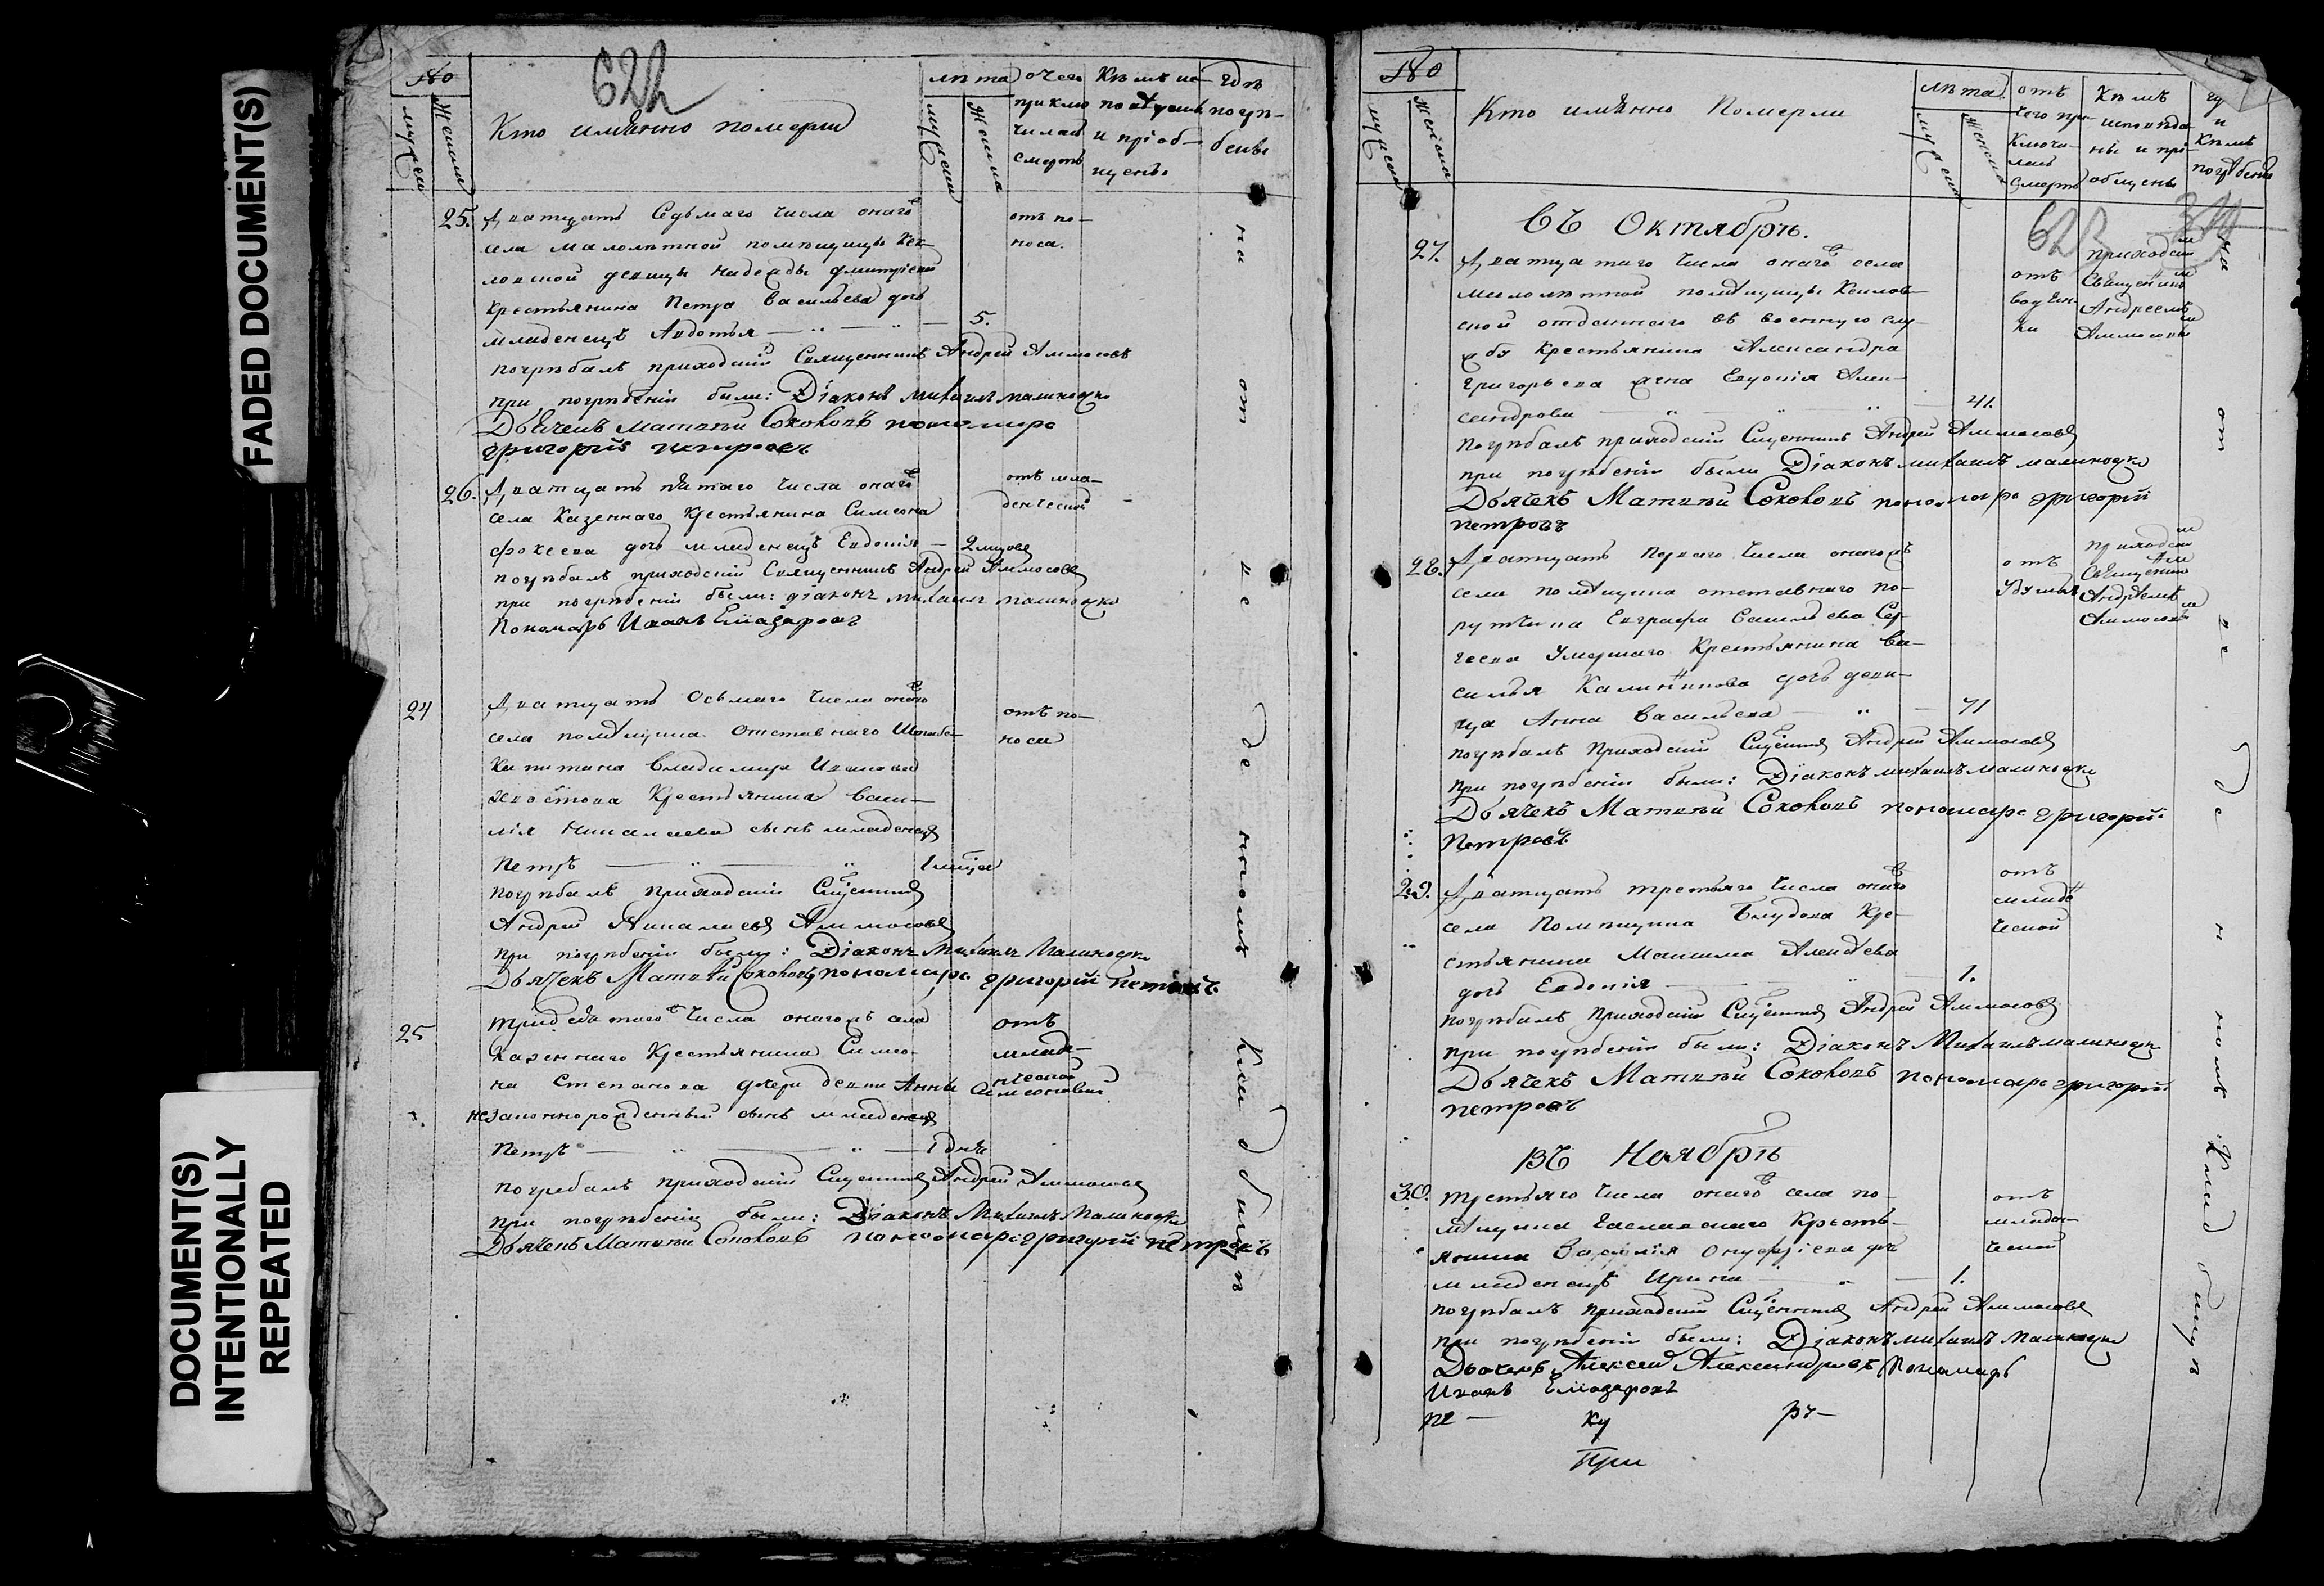 FADED DOCUMENT(S)
DOCUMENT(S)
INTENTIONALLY
REPEATED
622
№
мужеска
женска
Кто имянно померли
лѣта
мужеска
женска
отчего приключилась смерть
Кѣмъ исповѣданы и пріобщены
гдѣ погребены
25. Дватцать Седьмаго числа онагожъ
села малолѣтной помѣщицы
девицы Надежды
Крестьянина Петра Васильева дочь
младенецъ Авдотья — 5.
от поноса.
погрѣбалъ приходскій Священникъ Андрей Аммосовъ
при погрѣбеніи были: Діаконъ Михаилъ Малиновскій
Дьячекъ Матвѣй Соколовъ пономарь
Григорій Петровъ
26. Дватцать пятаго числа онагожъ
села Казеннаго Крестьянина Симеона
Фокеева дочь младенецъ Евдокія — 2 месяцовъ
отъ младенческой
погрѣбалъ приходскій Священникъ Андрей Аммосовъ
при погрѣбеніи были: діаконъ Михаилъ Малиновскій
Пономарь Иванъ Елиазаровъ
24 Дватцать Осьмаго числа онагожъ
села помѣщика Отставнаго Штабс-
Капитана Владимира Иванова
Хвостова Крестьянина Васи-
лія Николаева сынъ младенецъ
Петръ — 1 месяца
отъ поноса
погрѣбалъ приходскій Священникъ
Андрей Николаевъ Аммосовъ
при погрѣбеніи были: Діаконъ Михаилъ Малиновскій
Дьячекъ Матвѣй Соколовъ пономарь Григорій Петровъ
25 Тридцатаго числа онагожъ села
Казеннаго Крестьянина Симео-
на Степанова дочери девки Анны Симеоновой
незаконнорожденный сынъ младенецъ
Петръ — 1 дня
отъ младенческой
погребалъ приходскій Священникъ Андрей Аммосовъ
при погрѣбеніи были: Діаконъ Михаилъ Малиновскій
Дьячекъ Матвѣй Соколовъ пономарь Григорій Петровъ
на отведенномъ кладбищѣ
№
мужеска
женска
Кто имянно Померли
лѣта.
мужеска
женска
отъ чего приключилась смерть
Кѣмъ исповѣданы и пріобщены
гдѣ и Кѣмъ погребены
623
Въ Октябрѣ.
27. Дватцатаго числа онагожъ села
малолѣтной помѣщицы
отданнаго въ военную слу-
жбу Крестьянина Александра
Григорьева жена Евдокія Алек-
сандрова — 41.
отъ водянки
приходскимъ
Священникомъ
Андреемъ
Аммосовымъ
погрѣбалъ приходскій Священникъ Андрей Аммосовъ
при погрѣбеніи были Діаконъ Михаилъ Малиновскій
Дьячекъ Матвѣй Соколовъ пономарь Григорій
Петровъ
28. Дватцать Перваго числа онагожъ
села помѣщика отставнаго по-
рутчика Евграфа Васильева Сер-
геева Умершаго Крестьянина Ва-
силья Калинникова дочь деви-
ца Анна Васильева — 71
отъ
приходскимъ
Священникомъ
Андреемъ
Аммосовымъ
погрѣбалъ Приходскій Священникъ Андрей Аммосовъ
при погрѣбеніи были: Діаконъ Михаилъ Малиновскій
Дьячекъ Матвѣй Соколовъ пономарь Григорій
Петровъ
29. Дватцать третьяго числа онагожъ
села Помѣщика Блудова Кре-
стьянина Максима Алексѣева
дочь Евдокія — 1.
отъ младенческой
погрѣбалъ Приходскій Священникъ Андрей Аммосовъ
при погрѣбеніи были: Діаконъ Михаилъ Малиновскій
Дьячекъ Матвѣй Соколовъ пономарь Григорій
Петровъ
Въ Ноябрѣ
30. Третьяго числа онагожъ села по-
мѣщика Крестъ-
янина Василія Онуфріева дочь
младенецъ Ирина — 1.
отъ младенческой
погрѣбалъ приходскій Священникъ Андрей Аммосовъ
при погрѣбеніи были: Діаконъ Михаилъ Малиновскій
Дьячекъ Алексей Александровъ Пономарь
Иванъ Елиазаровъ
При
на отведенномъ кладбищѣ